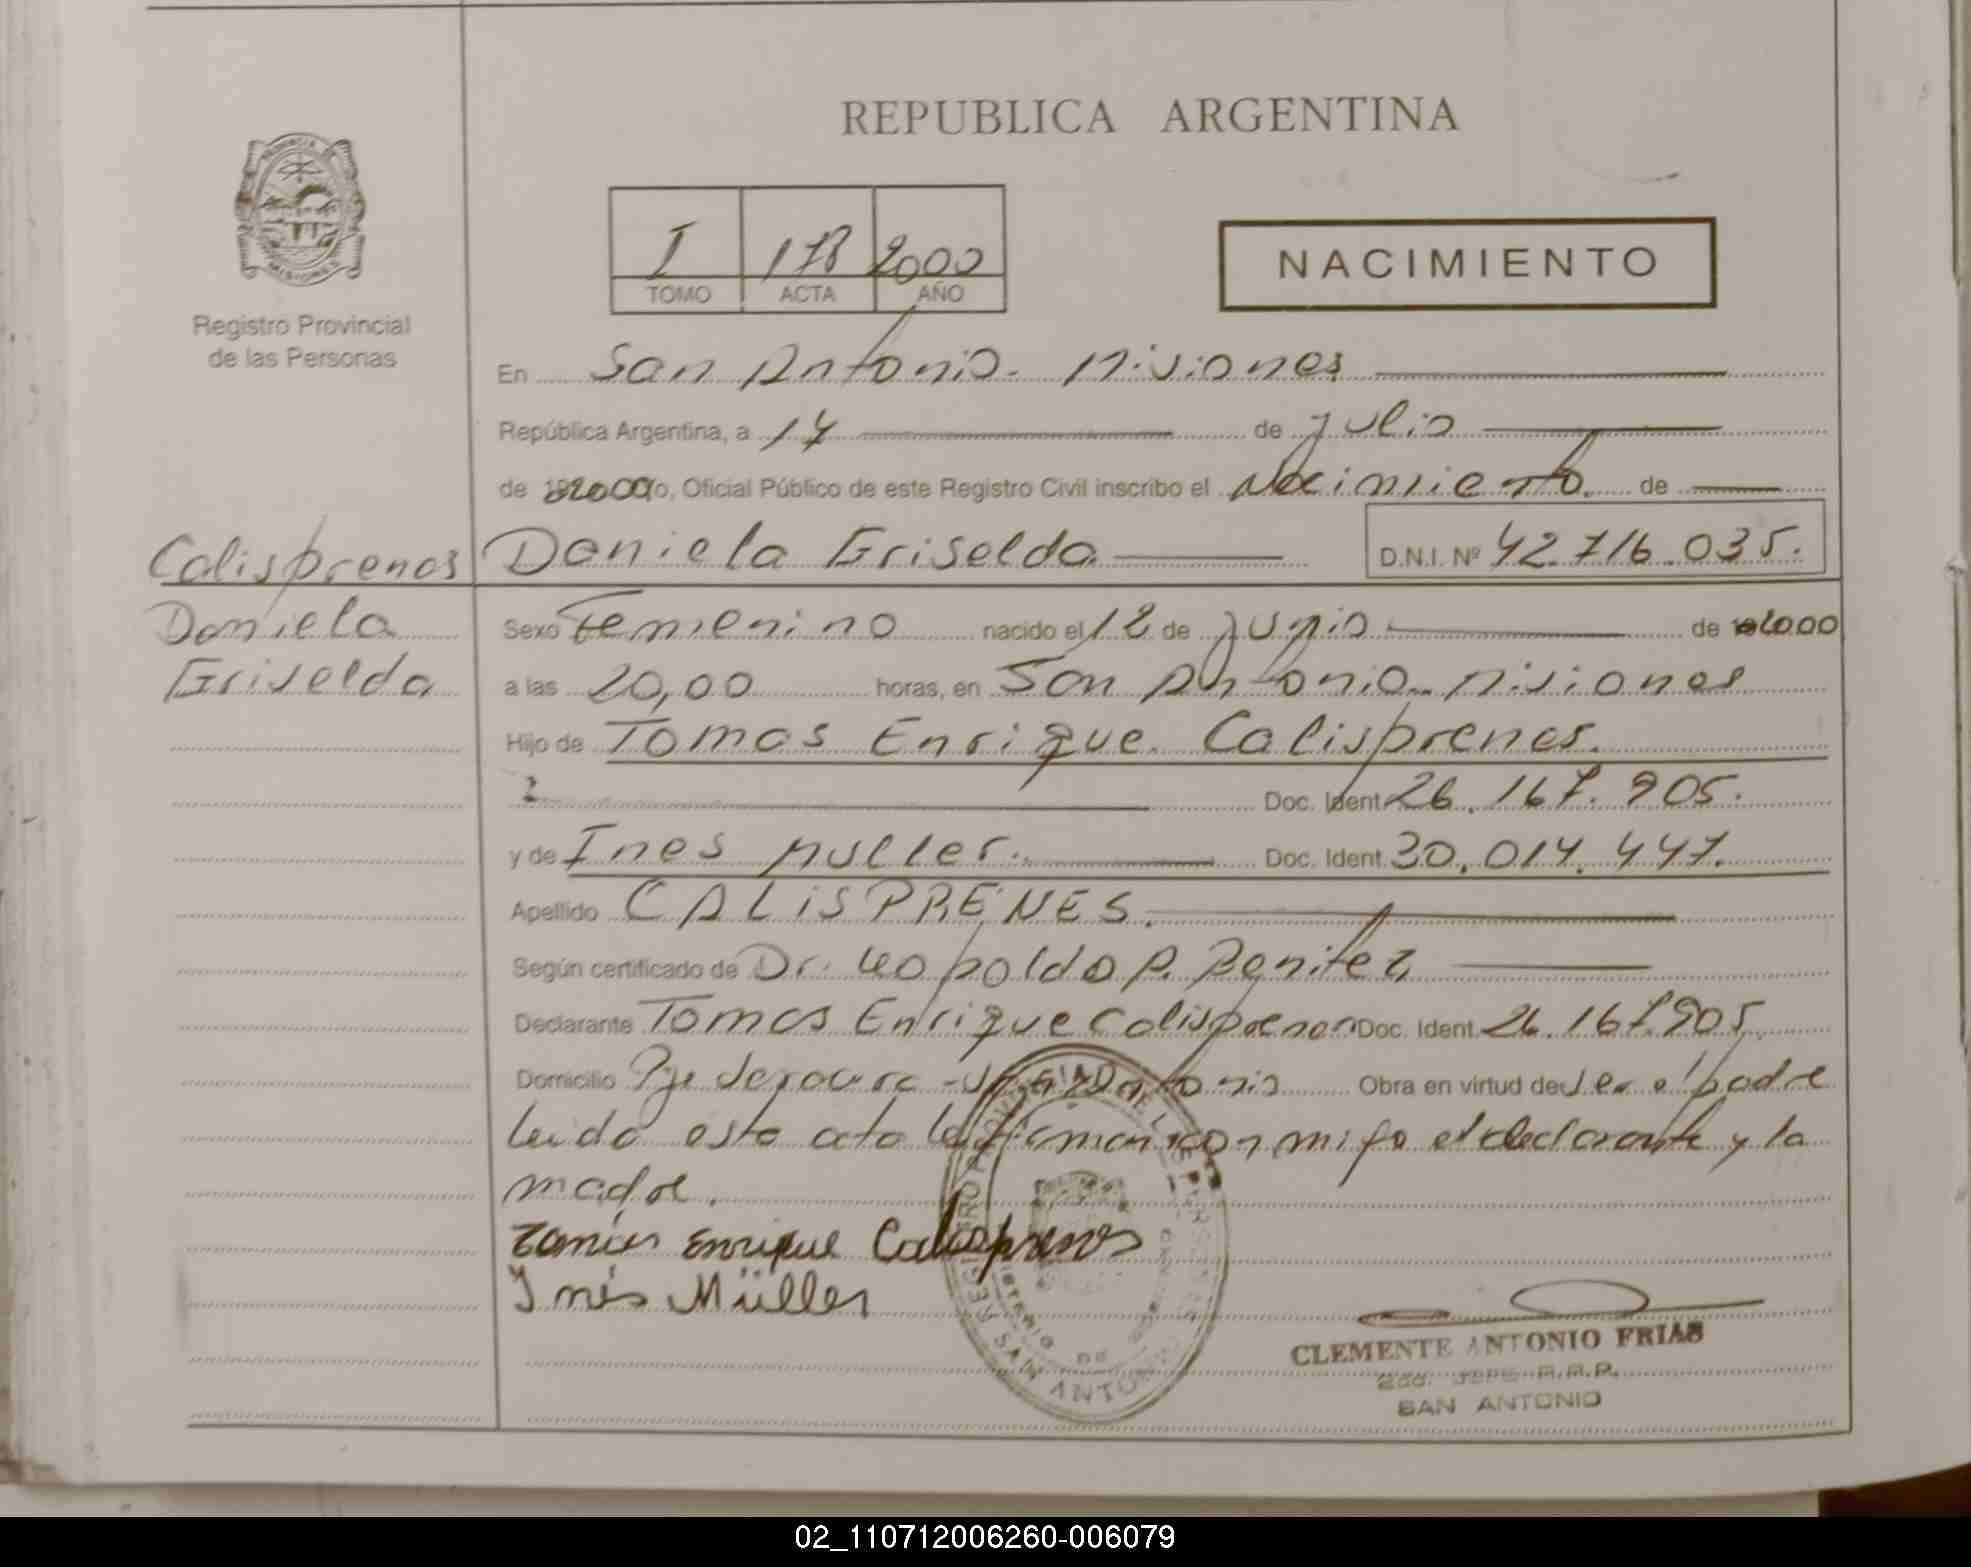 REPUBLICA ARGENTINA
PROVINCIA DE MISIONES
Registro Provincial
de las Personas
I 178 2000
TOMO ACTA AÑO
NACIMIENTO
En San Antonio. Misiones
República Argentina, a 14 de julio
de 2000 Yo, Oficial Público de este Registro Civil inscribo el Nacimiento. de
Calisprenes Daniela Griselda D.N.I. Nº 42.716.035.
Daniela
Griselda
Sexo Femenino nacido el 12 de junio de 2000
a las 20,00 horas, en San Antonio. Misiones
Hijo de Tomas Enrique Calisprenes.
Doc. Ident. 26.167.905.
y de Ines Muller. Doc. Ident. 30.014.447.
Apellido CALISPRENES.
Según certificado de Dr. Leopoldo P. Benitez
Declarante Tomas Enrique Calisprenes Doc. Ident. 26.167.905.
Domicilio San Antonio Obra en virtud de ser el padre
leida esta acta la firman con migo el declarante y la
madre.
Tomás Enrique Calisprenes
Inés Müller
CLEMENTE ANTONIO FRIAS
2do. JEFE R.P.P.
SAN ANTONIO
02_110712006260-006079